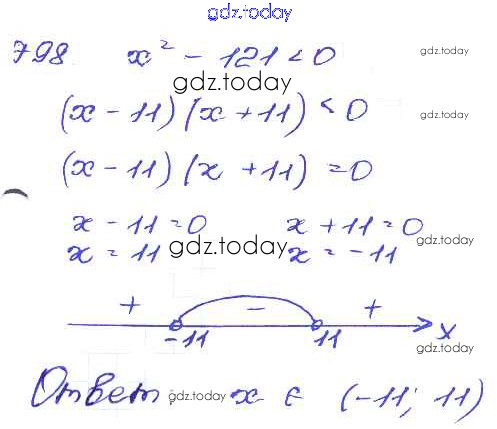 gdz.today
798 x² - 121 < 0 gdz.today
gdz.today
(x - 11)(x + 11) < 0 gdz.today
(x - 11)(x + 11) = 0
x - 11 = 0 x + 11 = 0 gdz.today
x = 11 gdz.today x = -11
+ - +
-11 11 x
gdz.today
Ответ: gdz.today x ∈ (-11; 11)